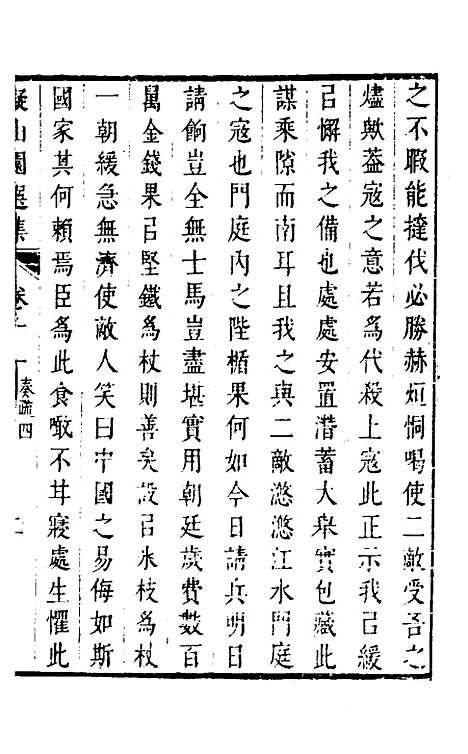 之不暇能撻伐必勝赫烜恫喝使二敵受吾之
燼歟葢寇之意若爲代殺上寇此正示我㠯緩
㠯懈我之備也處處安置潛蓄大舉實包藏此
謀乘隙而南耳且我之與二敵滺滺江水門庭
之寇也門庭內之陛楯果何如今日請兵明日
請餉豈全無士馬豈盡堪實用朝廷歲費數百
萬金錢果㠯堅鐵爲杖則善矣設㠯氷枝爲杖
一朝緩急無濟使敵人笑曰中國之易侮如斯
國家其何賴焉臣爲此食噉不甘寢處生懼此
擬山園選集 卷之一 奏疏四 二